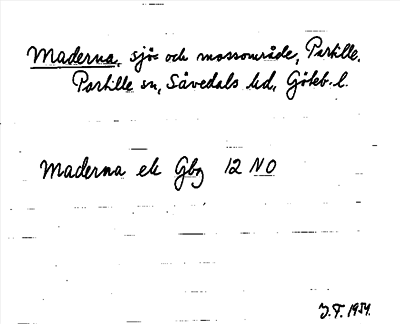 Maderna, sjö- och mossområde, Partille.
Partille sn, Sävedals hd, Göteb. l.
Maderna ek Gbg 12 NO
J.F. 1954.